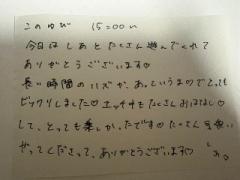 このゆび 15=00〜
今日はしおとたくさん遊んでくれて
ありがとうございます♡
長い時間の
あっというまでとっても
ビックリしました♡エッチもたくさんおはなし♡
して、とっても楽しかったです♡たくさん
やってくださって、ありがとうございます♡